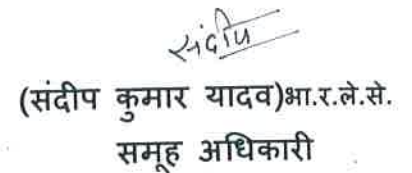 संदीप
(संदीप कुमार यादव)भा.र.ले.से.
समूह अधिकारी